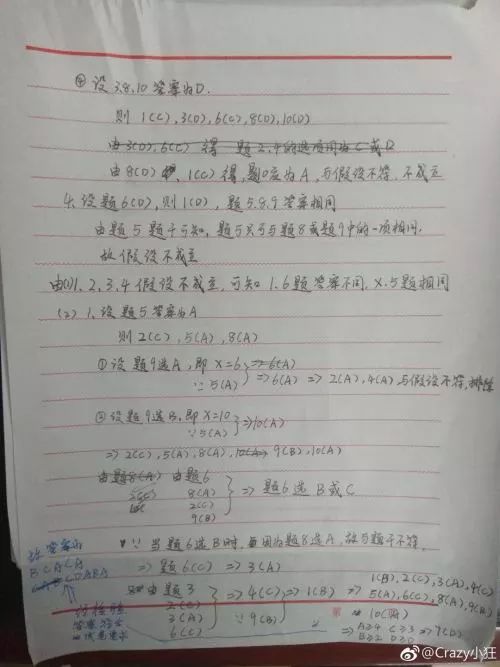 ④ 设 3.8.10 答案为D.
则 1(C), 3(D), 6(C), 8(D), 10(D)
由 3(D), 6(C) 得 题 2,4的选项同为 C 或 D
由 8(D) 1(C) 得, 题10应为A, 与假设不符, 不成立
4. 设题6(D), 则1(D), 题5.8.9答案相同
由题5题干可知, 题5只可与题8或题9中的一项相同,
故假设不成立
由(1)1, 2, 3, 4假设不成立, 可知 1.6题答案不同, X.5题相同
(2) 1. 设题5答案为A
则 2(C), 5(A), 8(A)
① 设题9选A, 即 X=6 ⇒ 6(A)
∵ 5(A) ⇒ 6(A) ⇒ 2(A), 4(A) 与假设不符, 排除
② 设题9选B, 即 X=10
∵ 5(A) ⇒ 10(A)
⇒ 2(C), 5(A), 8(A), 10(A) 9(B), 10(A)
由题8(A) 由题6
8(A)
2(C)
9(B)
⇒ 题6选 B或C
∵ 当题6选B时, 因为题8选A, 故与题干不符,
⇒ 题6(C) ⇒ 3(A)
由题3
2(C)
3(A)
6(C)
⇒ 4(C)
∵ 9(B)
⇒ 1(B)
1(B), 2(C), 3(A), 4(C)
5(A), 6(C), 8(A), 9(B)
10(A)
⇒ A≥4 C≥3 ⇒ 7(D)
B≥2 D≥0
故答案为
BCACA
CDABA
经检验
答案符合
@Crazy小狂